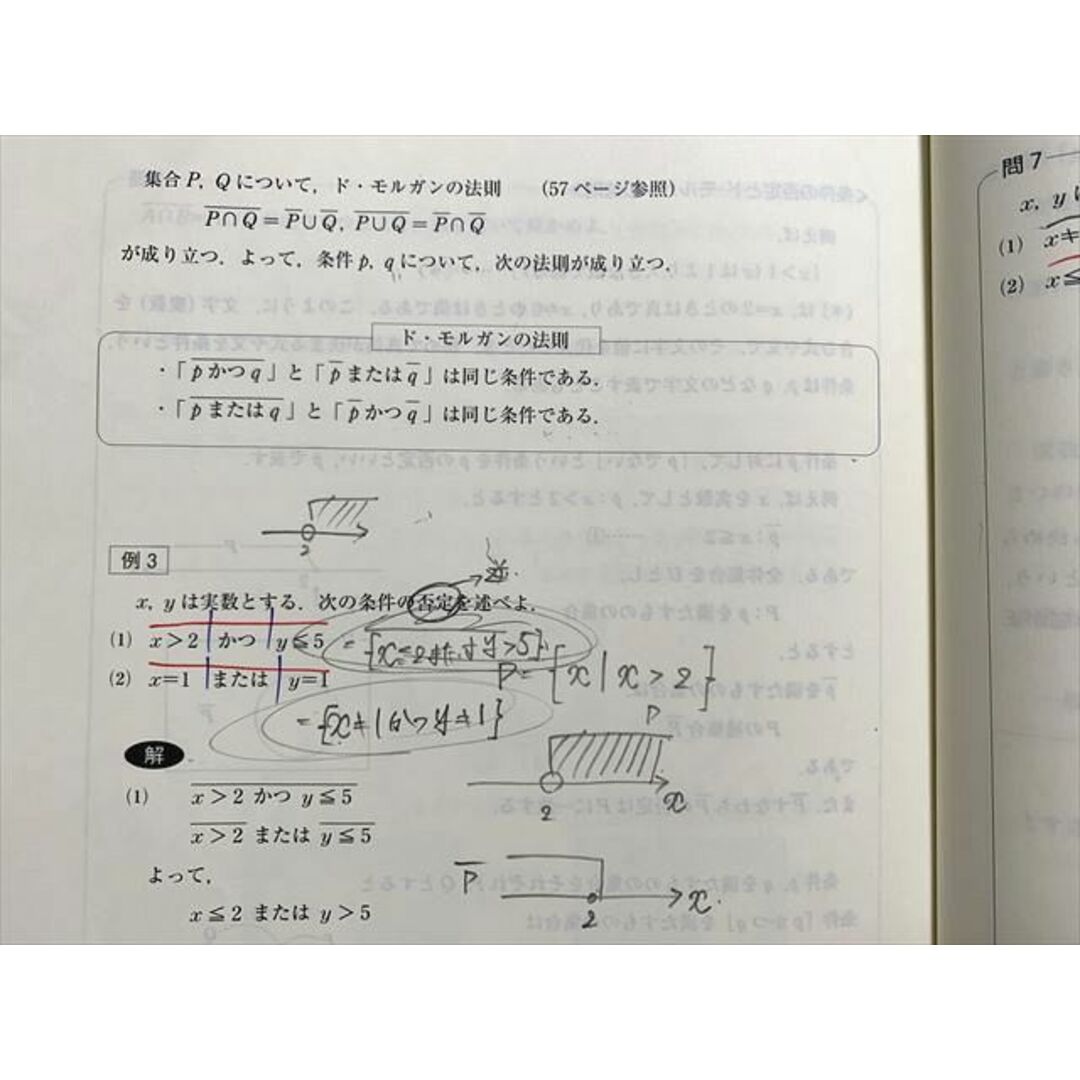 集合 P, Q について,ド・モルガンの法則 (57 ページ参照)
$\overline{P \cap Q} = \overline{P} \cup \overline{Q}$, $\overline{P \cup Q} = \overline{P} \cap \overline{Q}$
が成り立つ.よって,条件 p, q について,次の法則が成り立つ.
ド・モルガンの法則
・「$\overline{p かつ q}$」と「$\overline{p}$ または $\overline{q}$」は同じ条件である.
・「$\overline{p または q}$」と「$\overline{p}$ かつ $\overline{q}$」は同じ条件である.
2
例 3
x, y は実数とする.次の条件の否定を述べよ.
(1) x>2 かつ y≦5 = {x≦2 または y>5}
P= {x | x > 2}
(2) x=1 または y=1
= {x≠1 かつ y≠1}
P
2 x
解
(1) $\overline{x>2 かつ y≦5}$
$\overline{x>2}$ または $\overline{y≦5}$
よって,
x≦2 または y>5
$\overline{P}$
2 x.
問 7
x, y
(1) x≠
(2) x≦